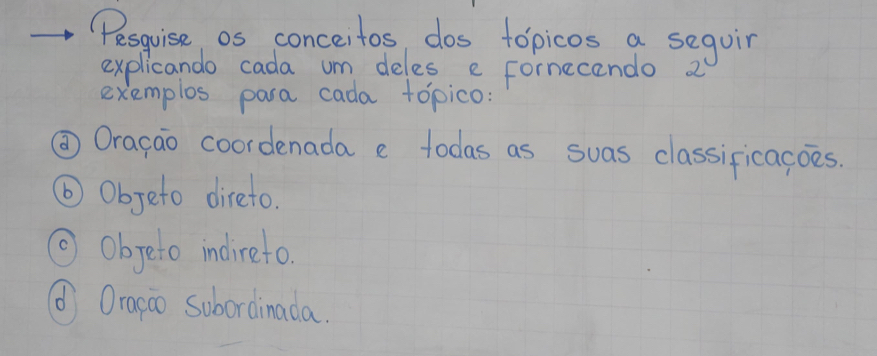 → Pesquise os conceitos dos tópicos a seguir
explicando cada um deles e fornecendo 2
exemplos para cada tópico:
ⓐ Oração coordenada e todas as suas classificações.
ⓑ Objeto direto.
ⓒ Objeto indireto.
ⓓ Oração subordinada.